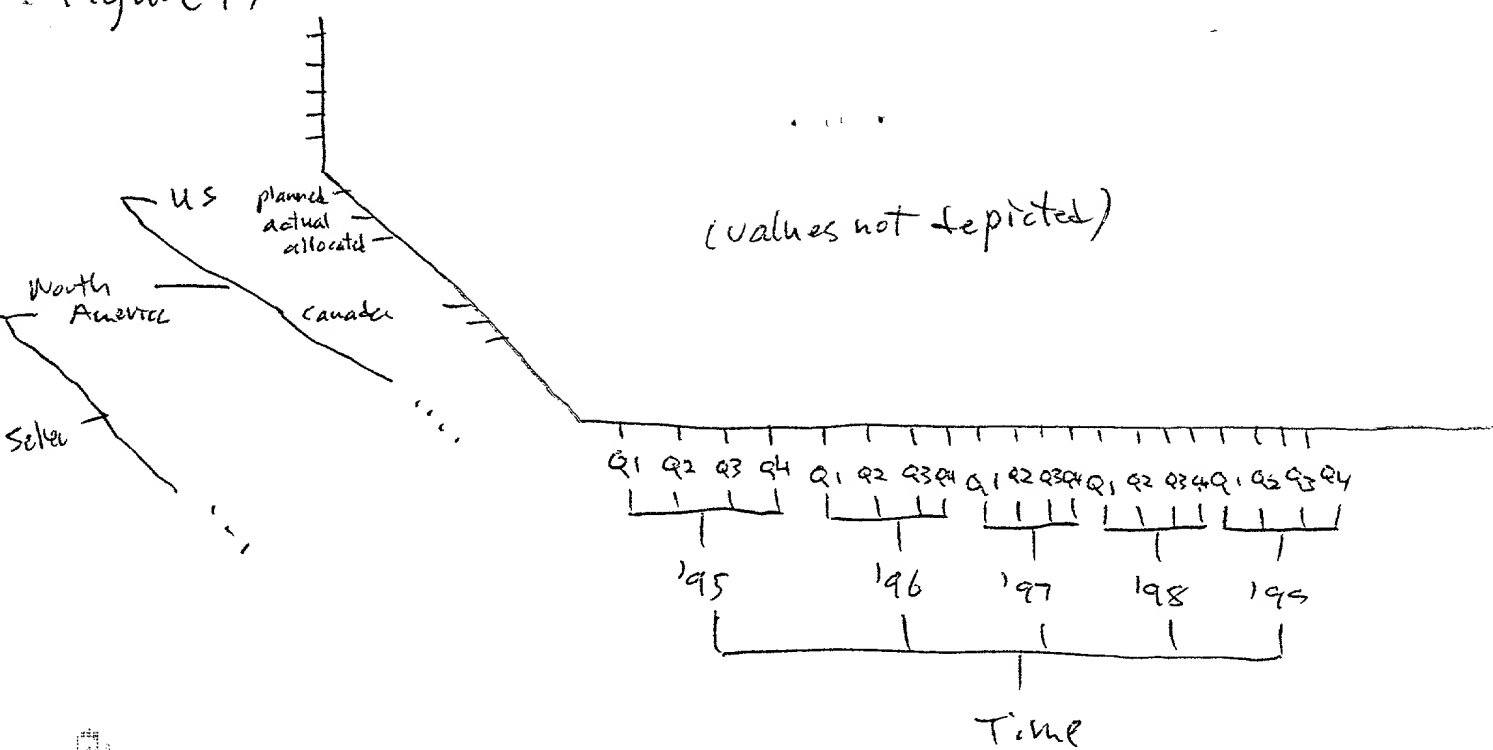 Figure 17
US
planned
actual
allocated
(values not depicted)
North
America
Canada
Q1 Q2 Q3 Q4 Q1 Q2 Q3 Q4 Q1 Q2 Q3 Q4 Q1 Q2 Q3 Q4 Q1 Q2 Q3 Q4
'95 '96 '97 '98 '99
Time